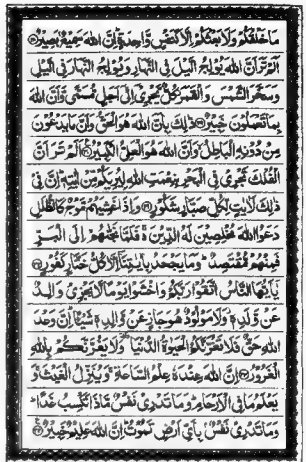 ما خلقكم ولا بعثكم الا كنفس واحدة ان الله سميع بصير ۝
الم تر ان الله يولج اليل في النهار ويولج النهار في اليل
وسخر الشمس والقمر كل يجري الى اجل مسمى وان الله
بما تعملون خبير ۝ ذلك بان الله هو الحق وان ما يدعون
من دونه الباطل وان الله هو العلي الكبير ۝ الم تر ان
الفلك تجري في البحر بنعمت الله ليريكم من ايته ان في
ذلك لايت لكل صبار شكور ۝ واذا غشيهم موج كالظلل
دعوا الله مخلصين له الدين فلما نجهم الى البر
فمنهم مقتصد وما يجحد بايتنا الا كل ختار كفور ۝
يايها الناس اتقوا ربكم واخشوا يوما لا يجزي والد
عن ولده ولا مولود هو جاز عن والده شيئا ان وعد
الله حق فلا تغرنكم الحيوة الدنيا ولا يغرنكم بالله
الغرور ۝ ان الله عنده علم الساعة وينزل الغيث و
يعلم ما في الارحام وما تدري نفس ماذا تكسب غدا
وما تدري نفس باي ارض تموت ان الله عليم خبير ۝